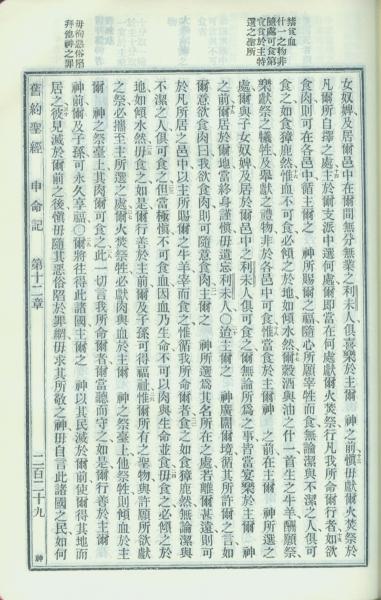 禁食血
什一之物非
隨處可食第
宜食於主特
選之聖所
毋徇惡俗陷
拜他神之罪
女奴婢及居爾邑中在爾間無分無業之利未人俱喜樂於主爾　神之前慎毋獻爾火焚祭於
凡爾所自擇之處主於爾支派中選何處爾即當在何處獻爾火焚祭行凡我所命爾行者如欲
食肉則可在各邑中循主爾之　神所賜爾之福隨心所願宰牲而食無論潔與不潔之人俱可
食之如食獐鹿然惟血不可食必傾之於地如傾水然爾穀酒與油之什一首生之牛羊酬願祭
樂獻祭之犧牲及舉獻之禮物非於各邑中可食惟當食於主爾神　之前在主爾　神所選之
處爾與子女奴婢及居於爾邑中之利未人俱可食之爾無論所爲之事皆當宴樂於主爾　神
之前爾居於爾地當終身謹慎毋遺忘利未人〇迨主爾之　神廣闢爾境循其所許爾之言如
爾意欲食肉曰我欲食肉則可隨意食肉主爾之　神所選爲其名所在之處若離爾甚遠則可
於凡所居之邑中以主所賜爾之牛羊宰而食之惟循我所命爾者食之如食獐鹿然無論潔與
不潔之人俱可食之但當極慎不可食血因血乃生命不可以肉與生命並食毋食之必傾之於
地如傾水然毋食之如是爾行善於主前爾及子孫可得福祉惟爾所有之聖物與許願所欲獻
之祭必攜至主所選之處爾火焚祭牲必獻肉與血於主爾　神之祭臺上他祭牲則傾血於主
爾　神之祭臺上其肉爾可食之此一切言我所命爾者爾當聽而守之如是爾行善於主爾
神前爾及子孫可永久享福〇爾將往得此諸國主爾之　神以其民滅於爾前使爾得其地而
居之彼見滅於爾前之後慎毋隨其惡俗陷於罪網毋求其所敬之神毋自言此諸國之民如何
舊約聖經　申命記　第十二章　二百二十九　神